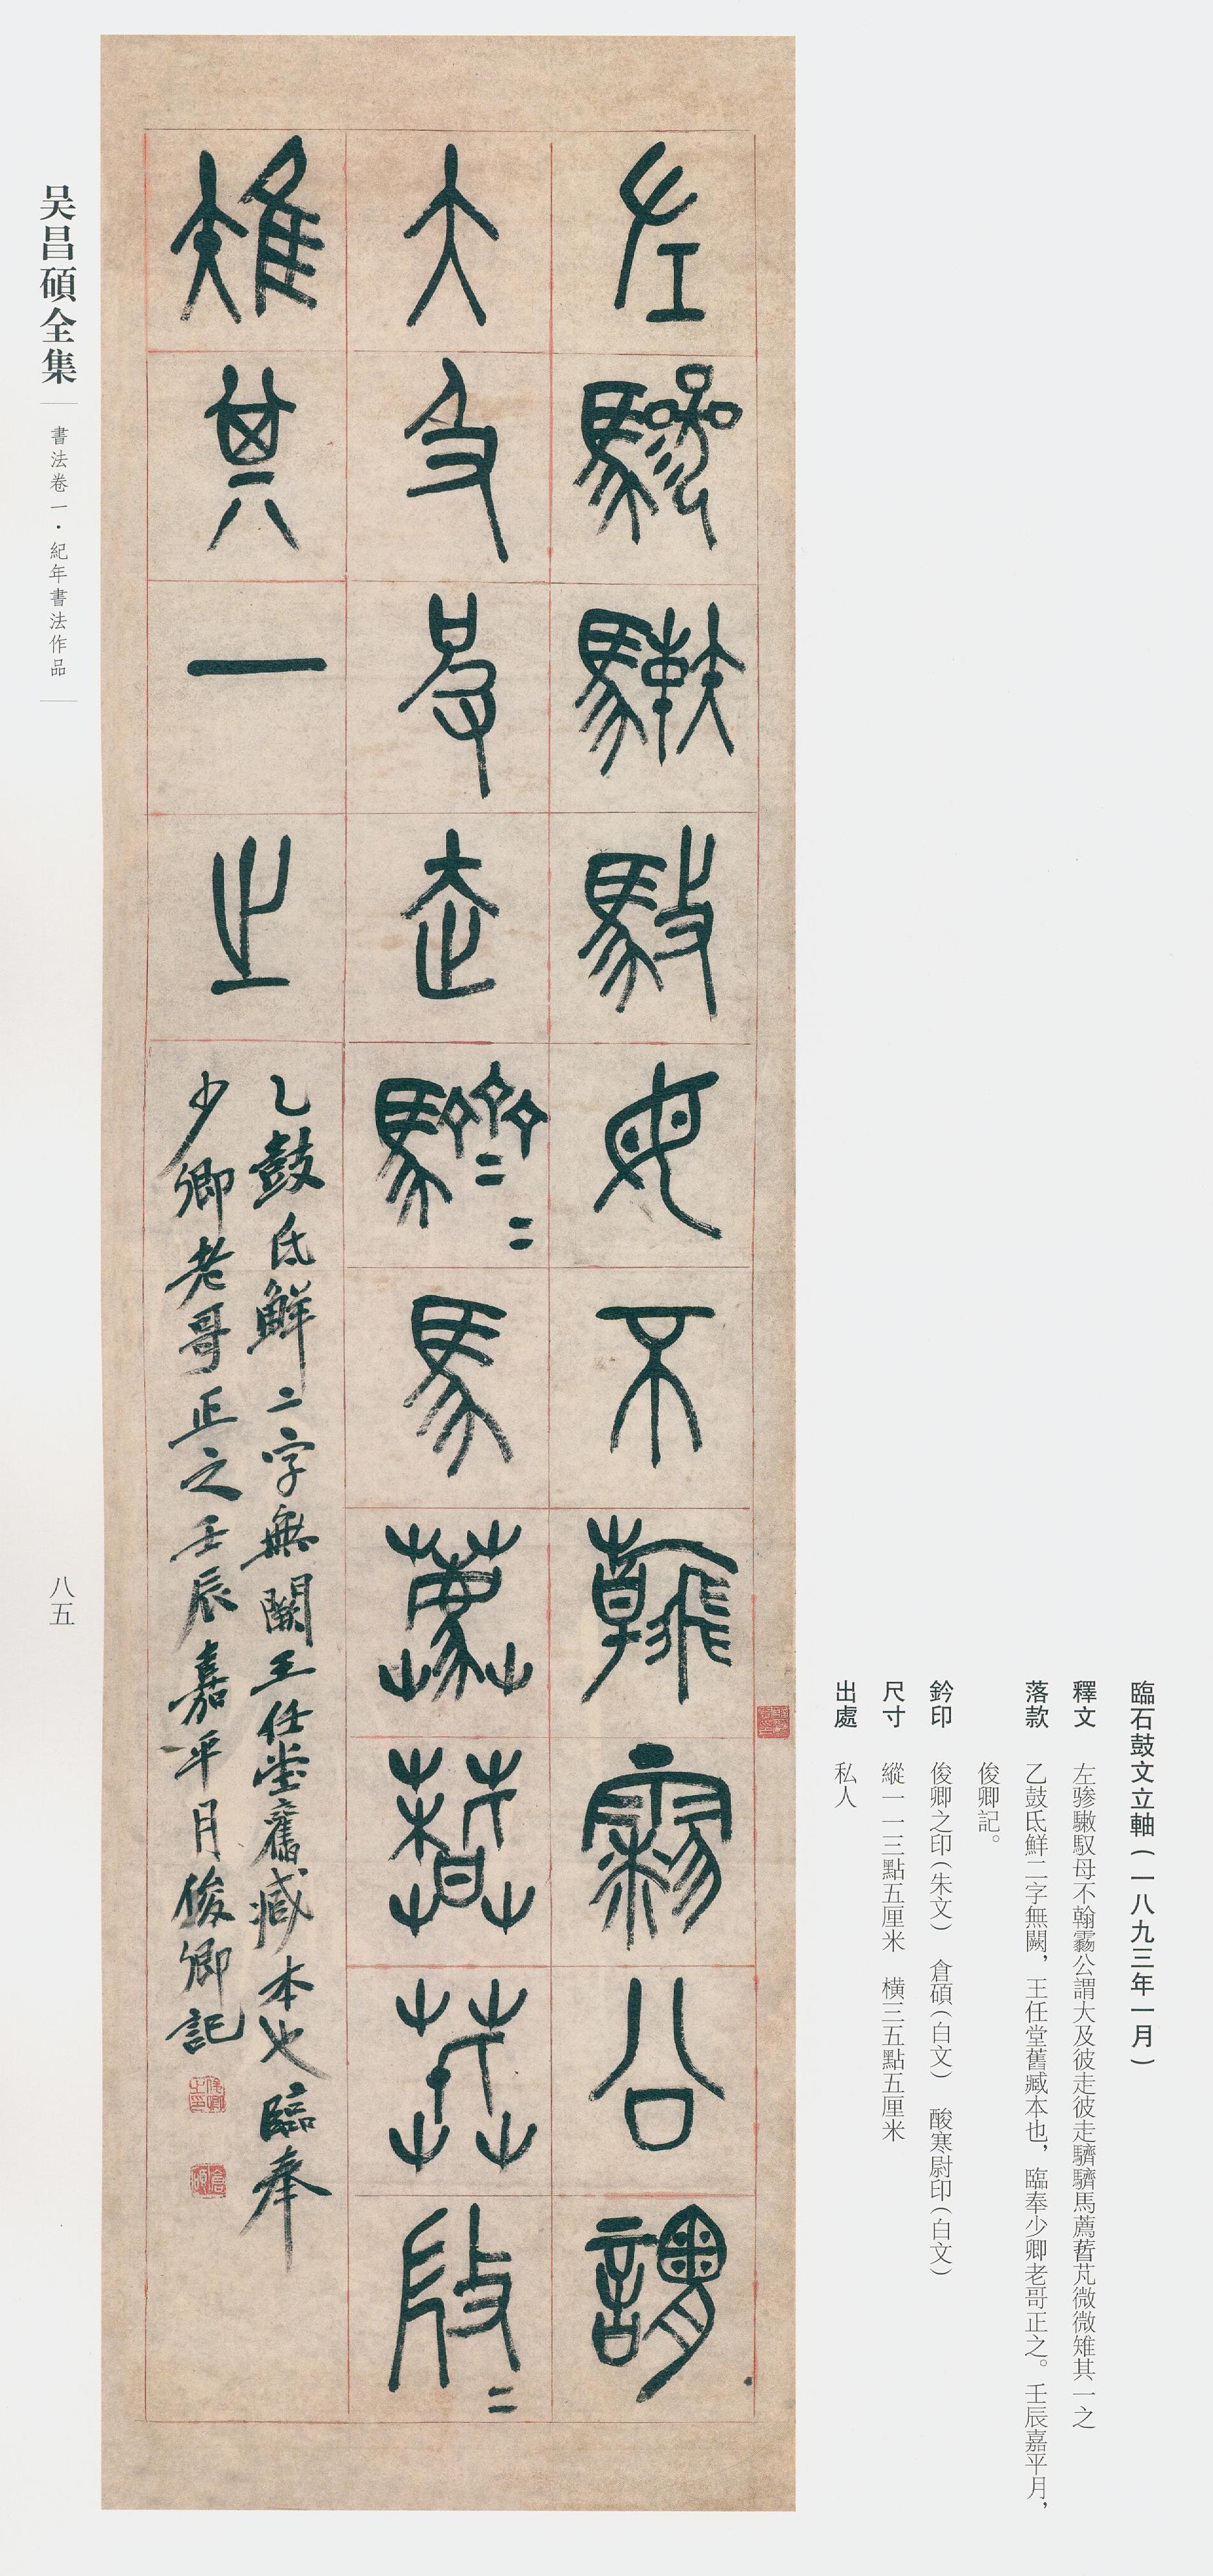 臨石鼓文立軸（一八九三年一月）
釋文 左骖驐馭母不翰靃公謂大及彼走彼走驕驕馬薦蓍芃微微雉其一之
落款 乙鼓氐鮮二字無闕，王任堂舊臧本也，臨奉少卿老哥正之。壬辰嘉平月，
俊卿記。
鈐印 俊卿之印（朱文） 倉碩（白文） 酸寒尉印（白文）
尺寸 縱一一三點五厘米 橫三五點五厘米
出處 私人
左驂馭母不公謂
大及走馬薦
雉其一之
乙鼓氐鮮二字無闕王任堂舊臧本也臨奉
少卿老哥正之壬辰嘉平月俊卿記
俊卿之印
倉碩
吴昌碩全集
書法卷一·紀年書法作品
八五